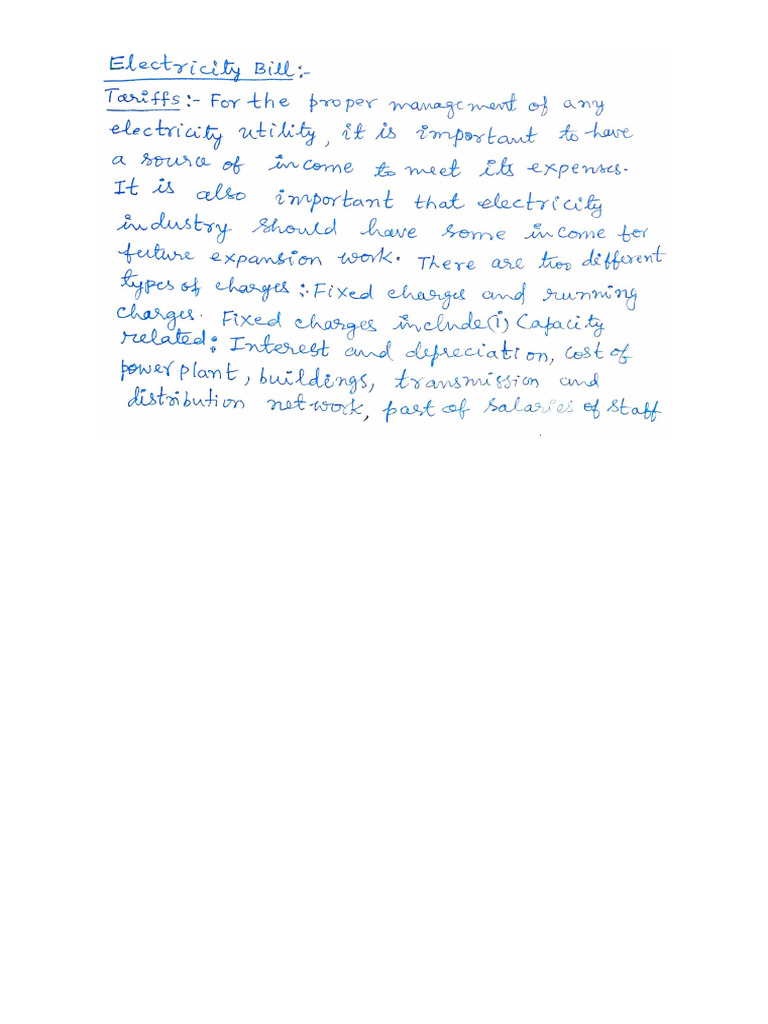 Electricity Bill:-
Tariffs:- For the proper management of any
electricity utility, it is important to have
a source of income to meet its expenses.
It is also important that electricity
industry should have some income for
future expansion work. There are two different
types of charges:- Fixed charges and running
charges. Fixed charges include(i) Capacity
related: Interest and depreciation, cost of
power plant, buildings, transmission and
distribution network, part of salaries of staff